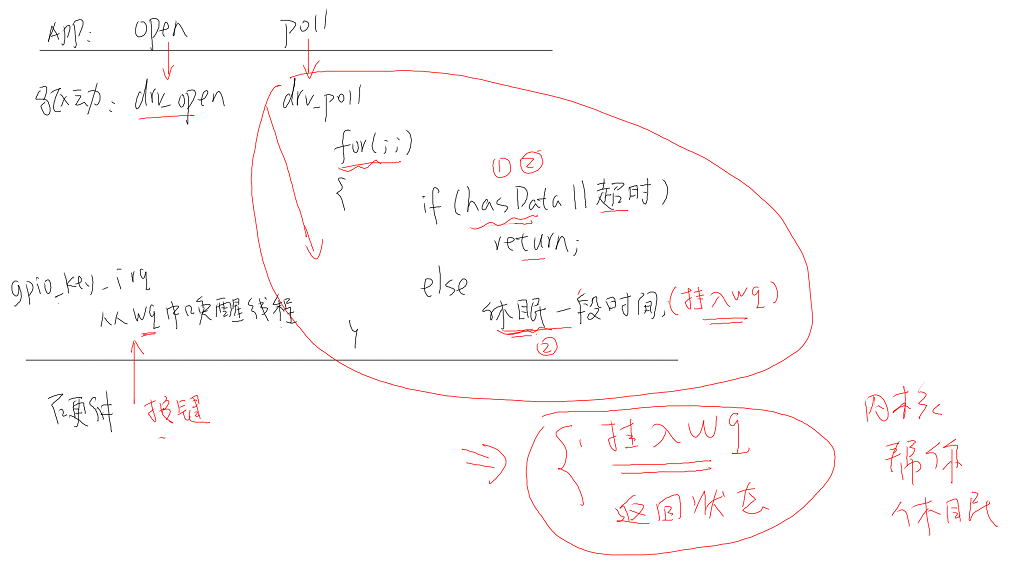 APP: open poll
驱动: drv_open drv_poll
for(;;)
{
① ②
if (hasData || 超时)
return;
else
休眠一段时间,(挂入wq)
②
}
gpio_key_irq
从wq中唤醒线程
硬件 按键
⇒ { 挂入wq
返回状态
内核
帮你
休眠